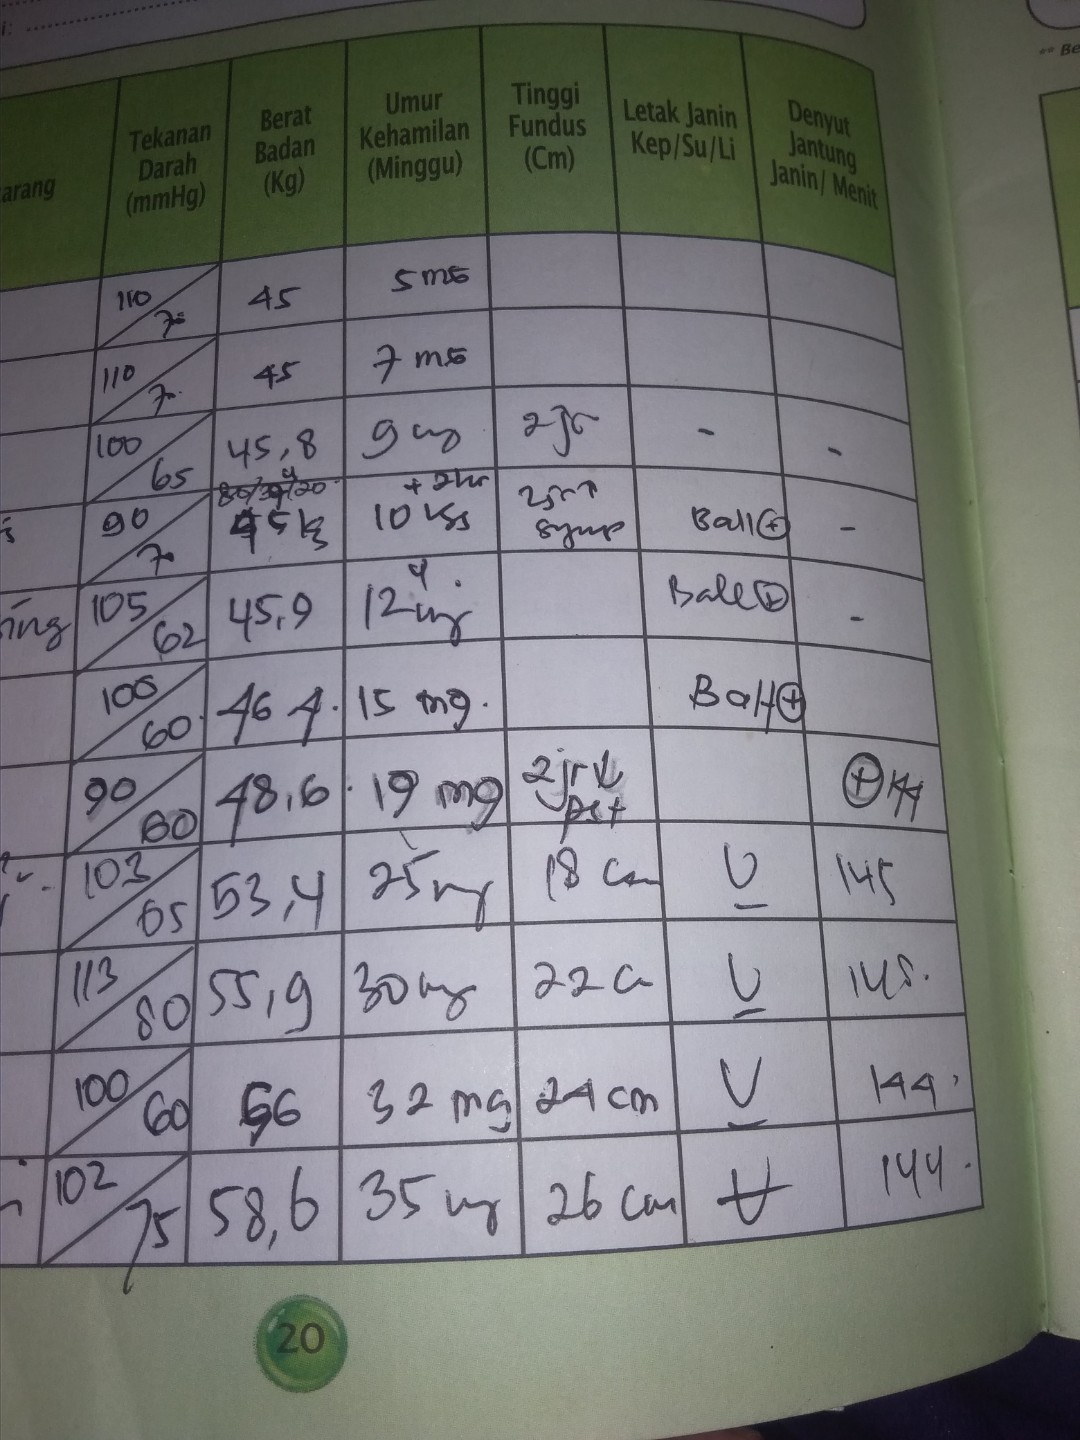 i: ........................
** Be
arang
Tekanan Darah (mmHg)
Berat Badan (Kg)
Umur Kehamilan (Minggu)
Tinggi Fundus (Cm)
Letak Janin Kep/Su/Li
Denyut Jantung Janin/ Menit
110/70 45 5 mg
110/70 45 7 mg
100/65 45,8 9 mg 2 jr - -
90/70 45 kg 10 + 2 hr Ball + -
ing 105/62 45,9 12 4 mg Ball + -
100/60 46 4 15 mg Ball +
90/60 48,6 19 mg 2 jr pst +
103/65 53,4 25 mg 18 cm U 145
113/80 55,9 30 mg 22 cm U 145
100/60 56 32 mg 24 cm U 144
102/75 58,6 35 mg 26 cm U 144
20